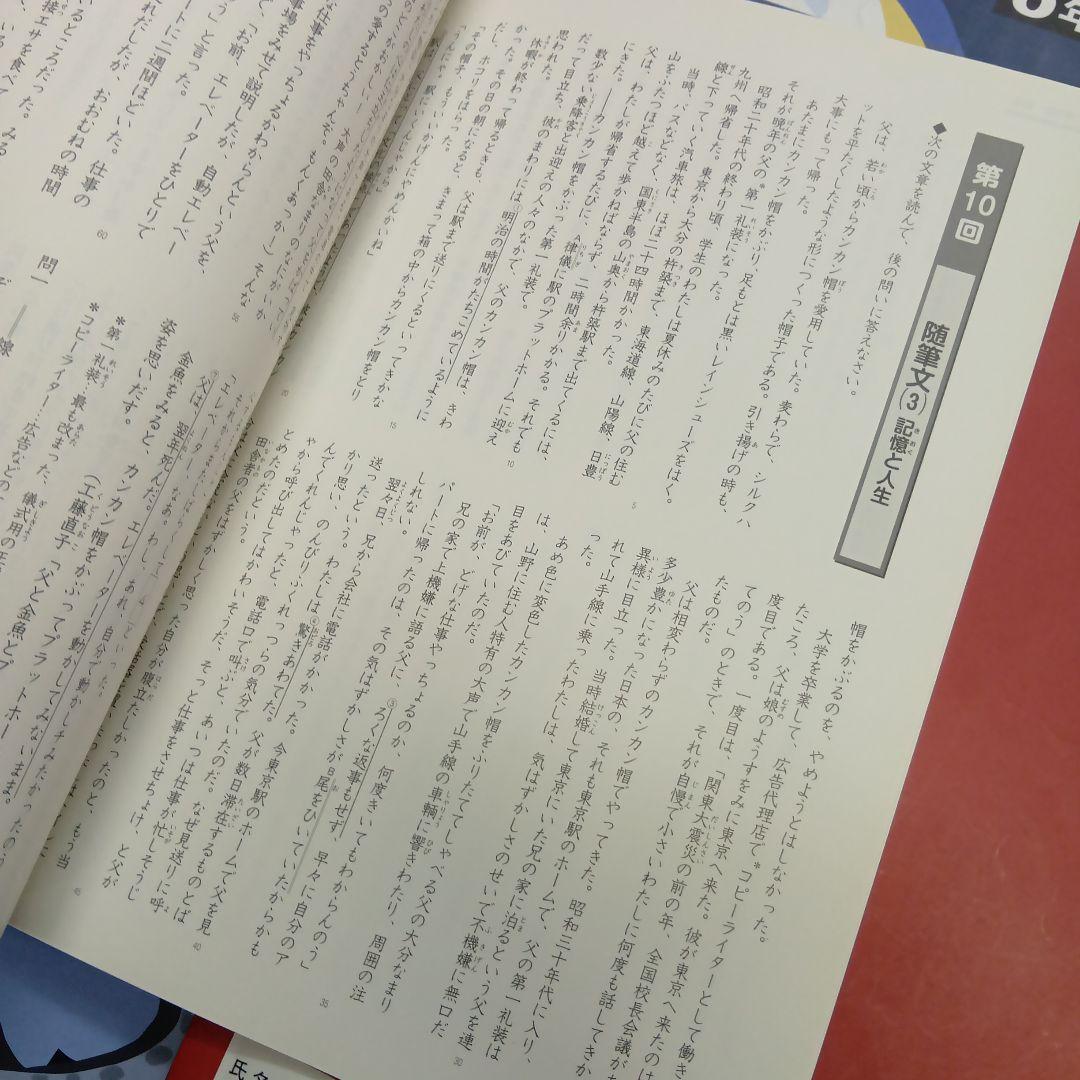 第10回
随筆文(3) 記憶と人生
◆次の文章を読んで、後の問いに答えなさい。
父は、若い頃からカンカン帽を愛用していた。麦わらで、シルクハ
ットを平たくしたような形につくった帽子である。引き揚げの時も、
大事にもって帰った。
あたまにカンカン帽をかぶり、足もとは黒いレインシューズをはく。
それが晩年の父の*第一礼装になった。
昭和二十年代の終わり頃、学生のわたしは夏休みのたびに父の住む
九州へ帰省した。東京から大分の杵築まで、東海道線、山陽線、日豊
線と下っていく汽車旅は、ほぼ二十四時間かかった。
当時、バスなどなく、国東半島の山奥から杵築駅まで出てくるには、
山を、ふたつほど越えて歩かねばならず、二時間余りかかる。それでも
父は、わたしが帰省するたびに、律儀に駅のプラットホームに迎え
にきた。――カンカン帽をかぶった第一礼装で。
数少ない乗降客と出迎えの人々のなかで、父のカンカン帽は、きわ
だって目立ち、彼のまわりには、明治の時間がたちこめているように
思われた。
休暇が終わって帰るときも、父は駅まで送りにくるといってきかな
かった。その日の朝になると、きまって箱の中からカンカン帽をとり
だし、ホコリをはらった。
「その帽子、もう、いいかげんにやめんかいね」
帽をかぶるのを、やめようとはしなかった。
大学を卒業して、広告代理店で*コピーライターとして働き
たころ、父は娘のようすをみに東京へ来た。彼が東京へ来たのは
度目である。一度目は、「関東大震災の前の年、全国校長会議が
ての う」のときで、それが自慢で小さいわたしに何度も話してきか
たものだ。
父は相変わらずのカンカン帽でやってきた。昭和三十年代に入り、
多少豊かになった日本の、それも東京駅のホームで、父の第一礼装は
異様に目立った。当時結婚して東京にいた兄の家に泊るという父を連
れて山手線に乗ったわたしは、気はずかしさのせいで不機嫌に無口だ
った。
あめ色に変色したカンカン帽をふりたててしゃべる父の大分なまり
は、山野に住む人特有の大声で山手線の車輌に響きわたり、周囲の注
目をあびていたのだ。
「お前が、どげな仕事やっちょるのか、何度きいてもわからんのう」
兄の家で上機嫌に語る父に、③ろくな返事もせず、早々に自分のア
パートに帰ったのは、その気はずかしさがB尾をひいていたからかも
しれない。
翌々日、兄から会社に電話がかかった。今東京駅のホームで父を見
送ったという。わたしは④驚きあわてた。父が数日滞在するものとば
かり思い、のんびりふくれっつらの気分でいたのだ。なぜ見送りに呼
んでくれんじゃったと、電話口で叫ぶと、あいつは仕事が忙しそうじ
ゃから呼び出してはかわいそうだ、そっと仕事をさせちょけ、と父が
とめたのだという。
田舎者の父をはずかしく思った自分が腹立たしかったのと、もう当
⑦父は、翌年死んだ。エレベーターを動かしてみないまま。
金魚をみると、カンカン帽をかぶってプラットホー
姿を思いだす。
(工藤直子「父と金魚とプ
*第一礼装…最も改まった、儀式用の
*コピーライター…広告などの
問一
な仕事をやっちょるかわからんという父を、
事場をみせて説明したが、自動エレベー
で、「お前、エレベーターをひとりで
う」と言った。
ートに二週間ほどいた。仕事の
れだしたが、おおむねの時間
るところだった。みる
接エサを食べて
5
10
15
20
30
35
40
45
56
60
氏名